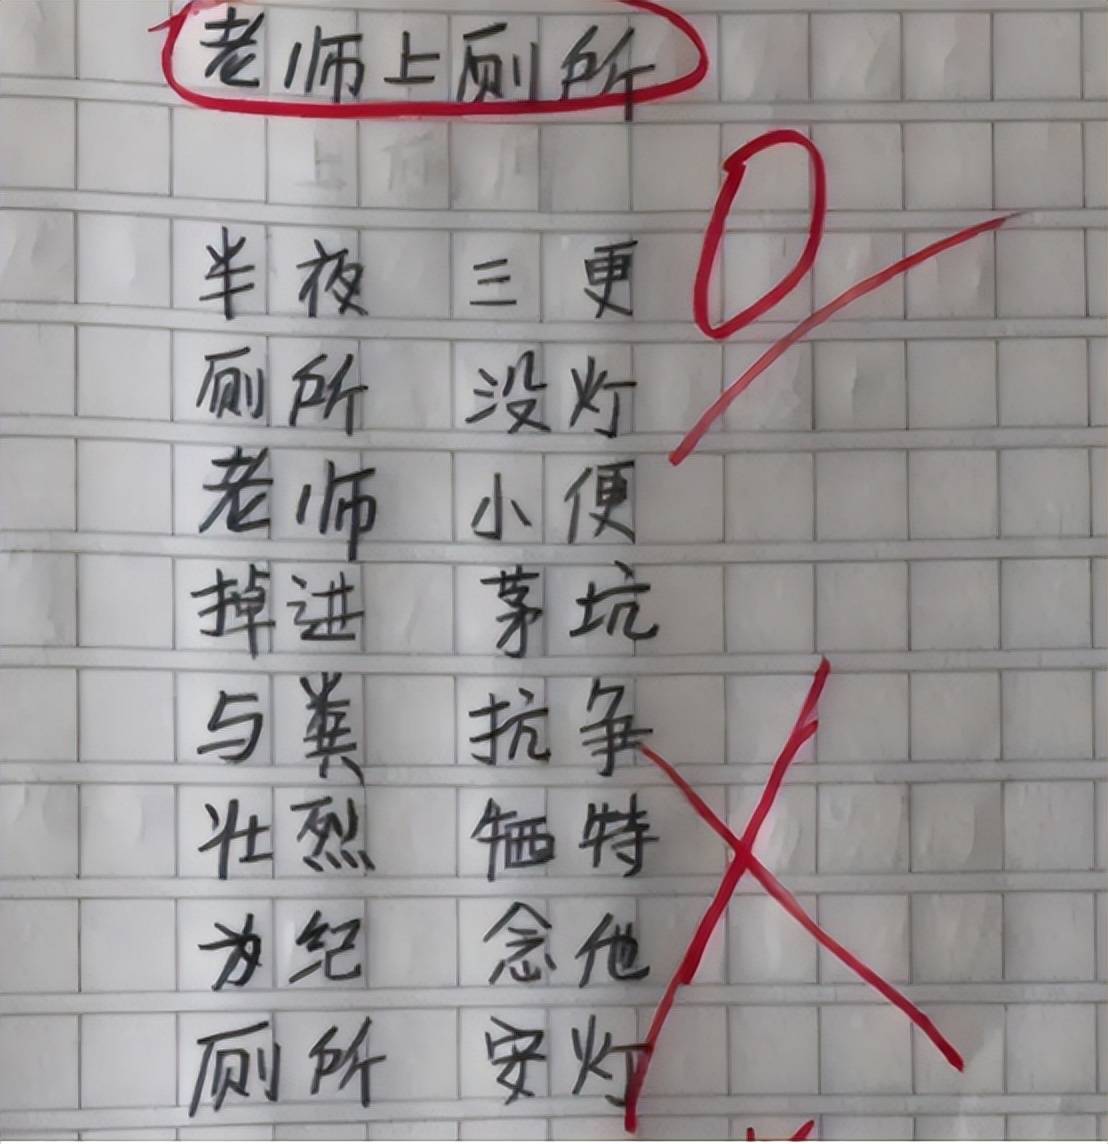 老师上厕所
0
半夜 三更
厕所 没灯
老师 小便
掉进 茅坑
与粪 抗争
壮烈 牺特
为纪 念他
厕所 安灯